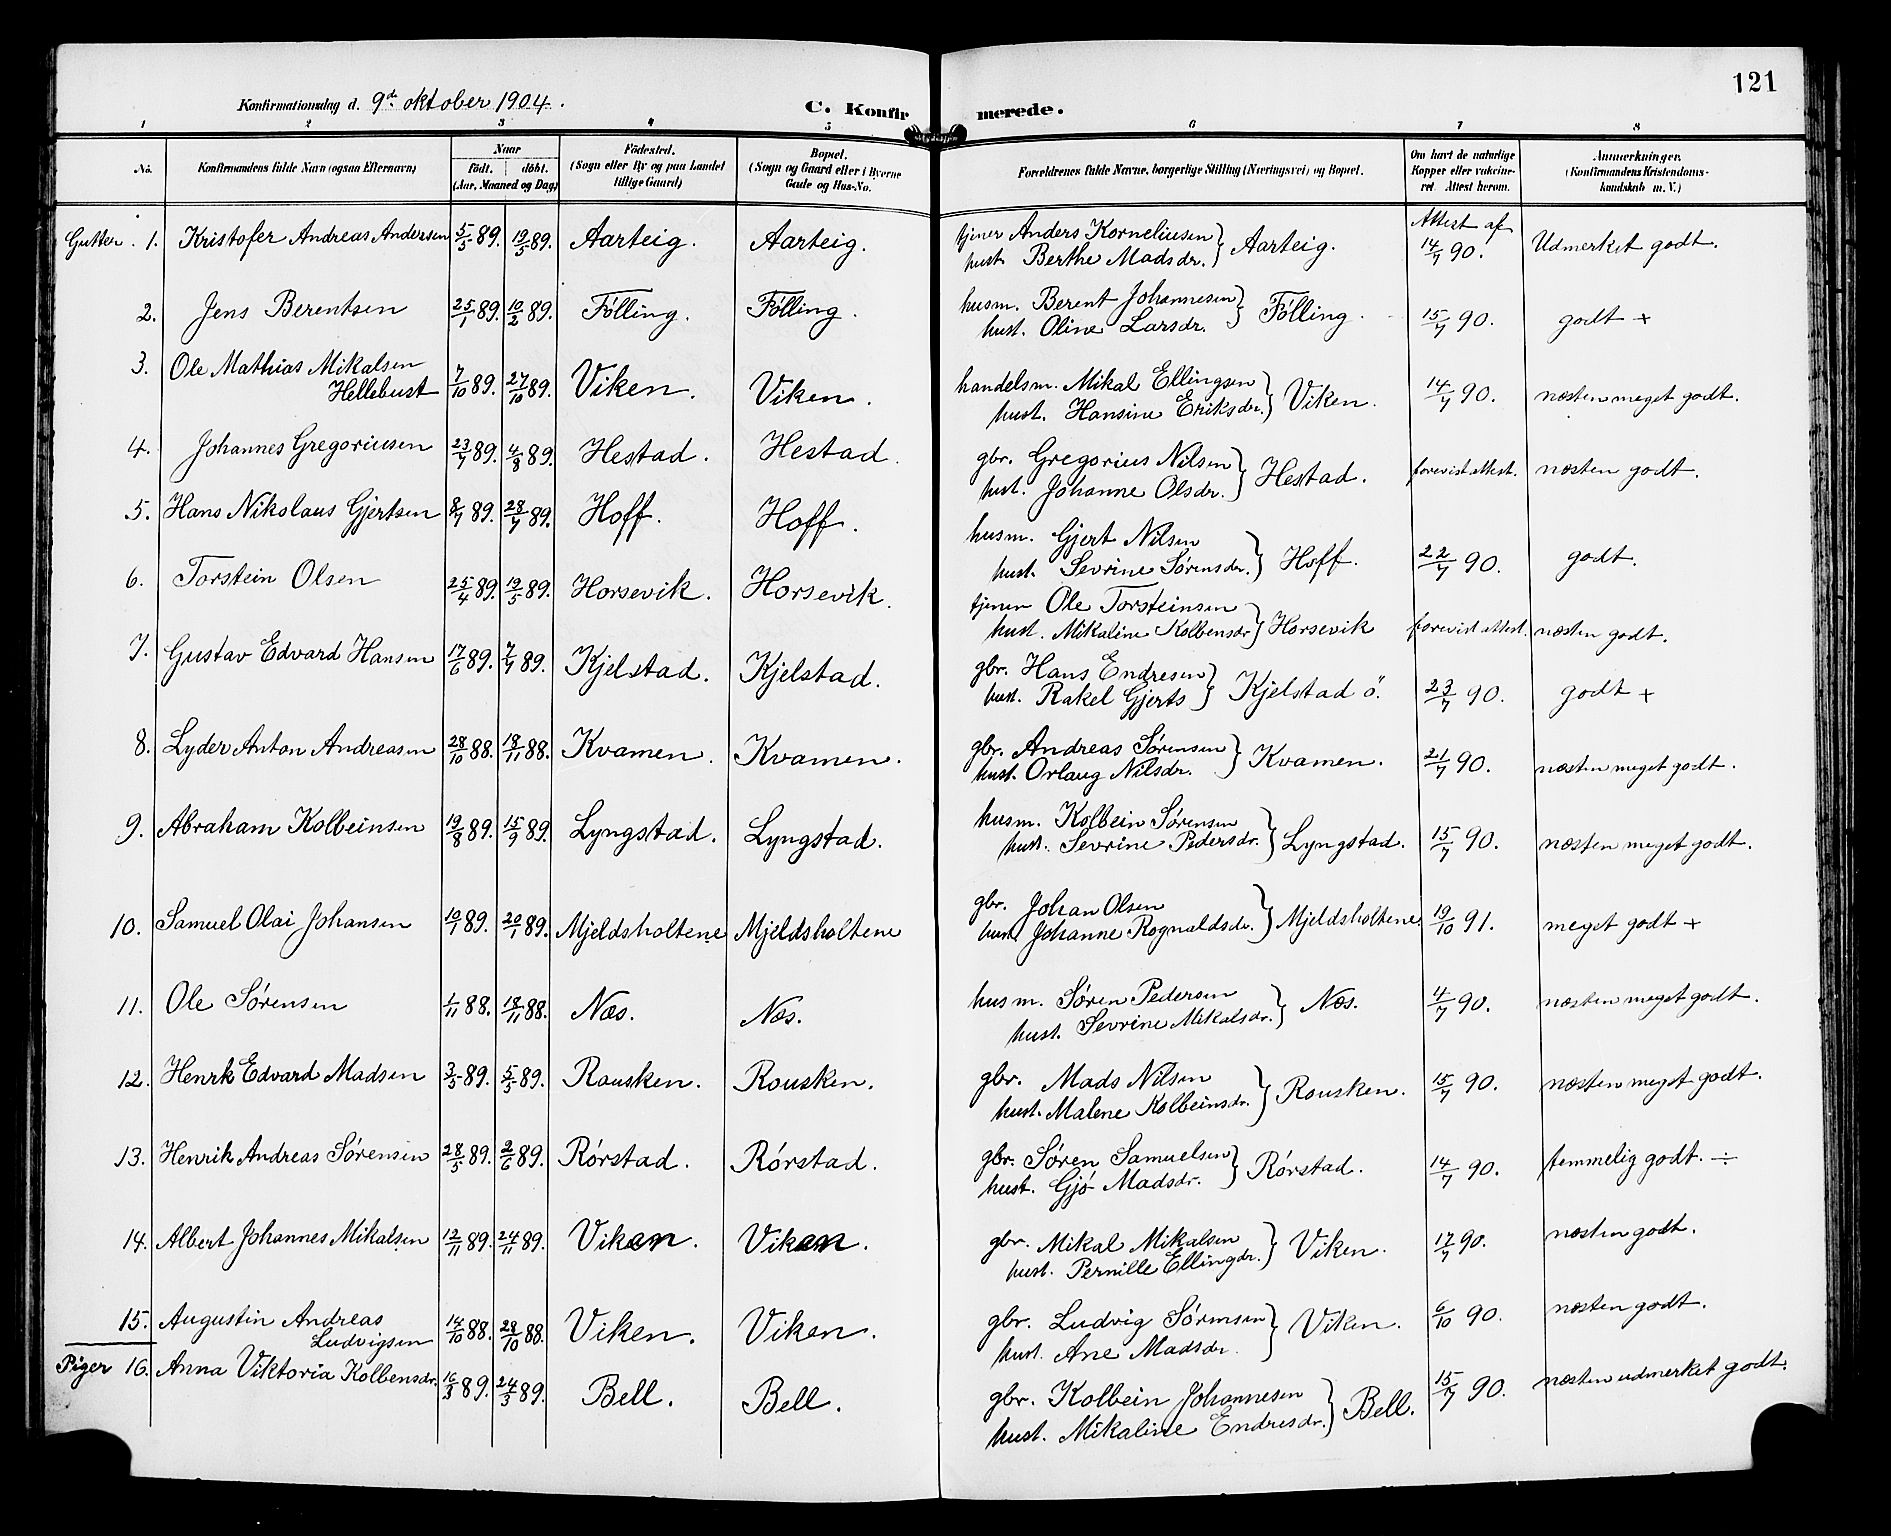 121
Konfirmationsdag d. 9de oktober 1904.
C. Konfirmerede.
1 2 3 4 5 6 7 8
No. Konfirmandens fulde Navn (ogsaa Efternavn) Naar født. døbt. (Aar, Maaned og Dag) Fødested. (Sogn eller By og paa Landet tillige Gaard) Bopæl. (Sogn og Gaard eller i Byerne Gade og Hus-No. Forældrenes fulde Navne, borgerlige Stilling (Næringsvei) og Bopæl. Om havt de naturlige Kopper eller vakcineret. Attest herom. Anmerkninger. (Konfirmandens Kristendomskundskab m. V.)
Gutter. 1. Kristofer Andreas Andersen 5/5 89. 19/5 89. Aarteig. Aarteig. tjener Anders Korneliusen hust. Berthe Madsdr. } Aarteig. Attest af 14/7 90. Udmerket godt.
2. Jens Berentsen 25/1 89. 10/2 89. Fölling. Fölling. husm. Berent Johannesen hust. Oline Larsdr. } Fölling. 15/7 90. godt +
3. Ole Mathias Mikalsen Hellebust 7/10 89. 27/10 89. Viken. Viken. handelsm. Mikal Ellingsen hust. Hansine Eriksdr. } Viken. 14/7 90. næsten meget godt.
4. Johannes Gregoriusen 23/7 89. 4/8 89. Hestad. Hestad. gbr. Gregorius Nilsen hust. Johanne Olsdr. } Hestad. forevist attest. næsten godt.
5. Hans Nikolaus Gjertsen 8/7 89. 28/7 89. Hoff. Hoff. husm. Gjert Nilsen hust. Sevrine Sørensdr. } Hoff. 22/7 90. godt.
6. Torstein Olsen 25/4 89. 19/5 89. Horsevik. Horsevik. tjener Ole Torsteinsen hust. Mikaline Kolbensdr } Horsevik forevist attest. næsten godt.
7. Gustav Edvard Hansen 17/6 89. 7/7 89. Kjelstad. Kjelstad. gbr. Hans Endresen hust. Rakel Gjerts } Kjelstad ö. 23/7 90. godt +
8. Lyder Anton Andreasen 28/10 88. 18/11 88. Kvamen. Kvamen. gbr. Andreas Sørensen hust. Orlaug Nilsdr. } Kvamen. 21/7 90. næsten meget godt.
9. Abraham Kolbeinsen 19/8 89. 15/9 89. Lyngstad. Lyngstad. husm. Kolbein Sørensen hust. Sevrine Pedersdr. } Lyngstad. 15/7 90. næsten meget godt.
10. Samuel Olai Johansen 10/1 89. 20/1 89. Mjeldsholtene Mjeldsholtene gbr. Johan Olsen hust. Johanne Rognaldsdr. } Mjeldsholtene. 19/10 91. meget godt +
11. Ole Sørensen 1/11 88. 18/11 88. Næs. Næs. husm. Søren Pedersen hust. Sevrine Mikalsdr. } Næs. 4/7 90. næsten meget godt.
12. Henrk Edvard Madsen 3/5 89. 5/5 89. Rousken. Rousken. gbr. Mads Nilsen hust. Malene Kolbeinsdr. } Rousken. 15/7 90. næsten meget godt.
13. Henrik Andreas Sørensen 28/5 89. 2/6 89. Rórstad. Rórstad. gbr. Søren Samuelsen hust. Gjó Madsdr. } Rórstad. 14/7 90. temmelig godt. ÷
14. Albert Johannes Mikalsen 12/11 89. 24/11 89. Viken. Viken. gbr. Mikal Mikalsen hust. Pernille Ellingdr. } Viken. 17/7 90. næsten godt.
15. Augustin Andreas Ludvigsen 14/10 88. 28/10 88. Viken. Viken. gbr. Ludvig Sørensen hust. Ane Madsdr. } Viken. 6/10 90. næsten godt.
Piger 16. Anna Viktoria Kolbensdr. 16/3 89. 24/3 89. Bell. Bell. gbr. Kolbein Johannesen hust. Mikaline Endresdr. } Bell. 15/7 90. næsten udmerket godt.